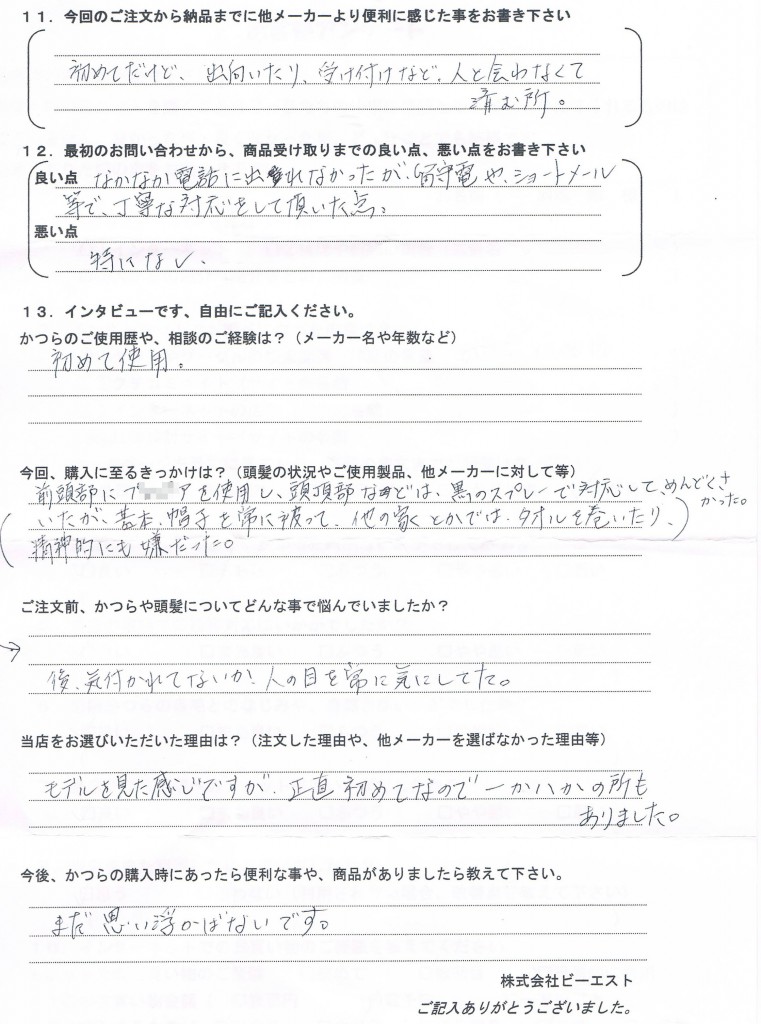 １１．今回のご注文から納品までに他メーカーより便利に感じた事をお書き下さい
初めてだけど、出向いたり、受け付けなど、人と会わなくて
済む所。
１２．最初のお問い合わせから、商品受け取りまでの良い点、悪い点をお書き下さい
良い点 なかなか電話に出れなかったが、留守電や、ショートメール
等で、丁寧な対応をして頂いた点。
悪い点
特になし、
１３．インタビューです、自由にご記入ください。
かつらのご使用歴や、相談のご経験は？（メーカー名や年数など）
初めて使用。
今回、購入に至るきっかけは？（頭髪の状況やご使用製品、他メーカーに対して等）
前頭部にプ アを使用し、頭頂部などは、黒のスプレーで対応して、めんどくさ
かった。
いたが、基本、帽子を常に被って、他の家とかでは、タオルを巻いたり、
精神的にも嫌だった。
ご注文前、かつらや頭髪についてどんな事で悩んでいましたか？
後、気付かれてないか、人の目を常に気にしてた。
当店をお選びいただいた理由は？（注文した理由や、他メーカーを選ばなかった理由等）
モデルを見た感じですが、正直初めてなので一か八かの所も
ありました。
今後、かつらの購入時にあったら便利な事や、商品がありましたら教えて下さい。
まだ思い浮かばないです。
株式会社ビーエスト
ご記入ありがとうございました。